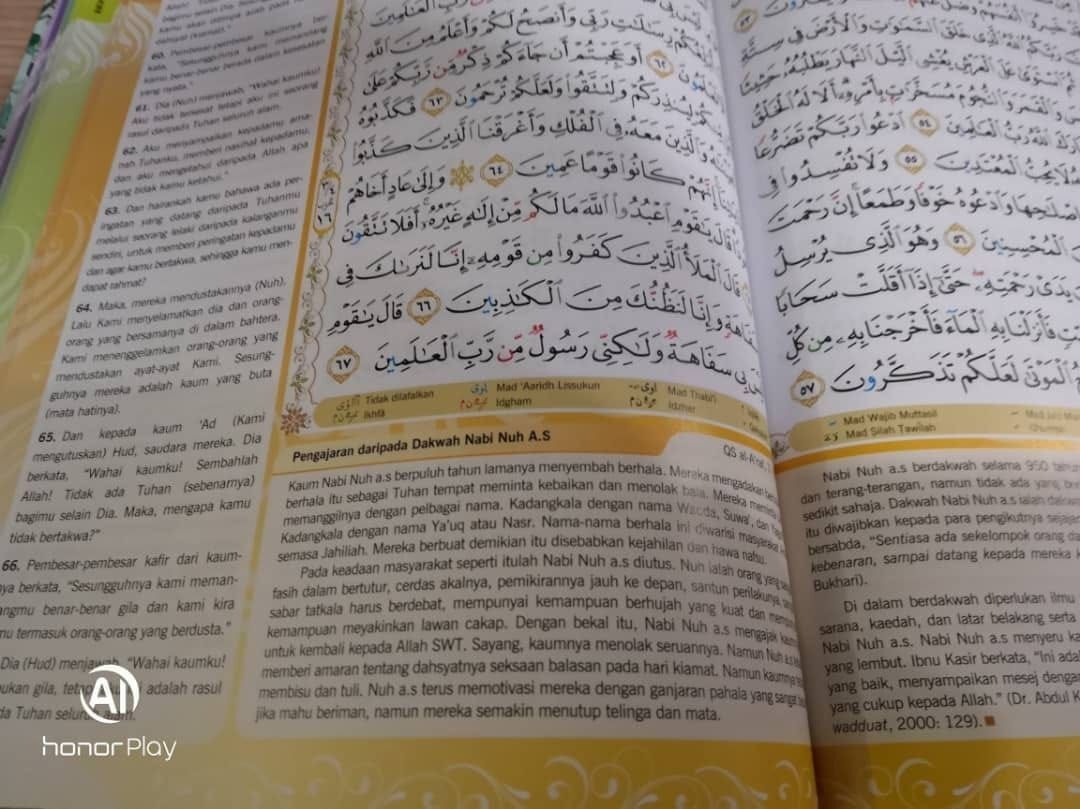 60. Pembesar-pembesar kaumnya ber-
kata, "Sesungguhnya kami memandang
kamu benar-benar berada dalam kesesatan
yang nyata."
61. Dia (Nuh) menjawab, "Wahai kaumku!
Aku tidak tersesat tetapi aku ini seorang
rasul daripada Tuhan seluruh alam.
62. Aku menyampaikan kepadamu ama-
nah Tuhanku, memberi nasihat kepadamu,
dan aku mengetahui daripada Allah apa
yang tidak kamu ketahui."
63. Dan hairankah kamu bahawa ada per-
ingatan yang datang daripada Tuhanmu
melalui seorang lelaki daripada kalanganmu
sendiri, untuk memberi peringatan kepadamu
dan agar kamu bertakwa, sehingga kamu men-
dapat rahmat?
64. Maka, mereka mendustakannya (Nuh).
Lalu Kami menyelamatkan dia dan orang-
orang yang bersamanya di dalam bahtera.
Kami menenggelamkan orang-orang yang
mendustakan ayat-ayat Kami. Sesung-
guhnya mereka adalah kaum yang buta
(mata hatinya).
65. Dan kepada kaum 'Ad (Kami
mengutuskan) Hud, saudara mereka. Dia
berkata, "Wahai kaumku! Sembahlah
Allah! Tidak ada Tuhan (sebenarnya)
bagimu selain Dia. Maka, mengapa kamu
tidak bertakwa?"
66. Pembesar-pembesar kafir dari kaum-
nya berkata, "Sesungguhnya kami meman-
angmu benar-benar gila dan kami kira
mu termasuk orang-orang yang berdusta."
Dia (Hud) menjawab, "Wahai kaumku!
ukan gila, adalah rasul
da Tuhan
رَّبِّ ٱلْعَٰلَمِينَ
رِسَٰلَٰتِ رَبِّى وَأَنصَحُ لَكُمْ وَأَعْلَمُ مِنَ ٱللَّهِ
تَعْلَمُونَ ٦٢ أَوَعَجِبْتُمْ أَن جَآءَكُمْ ذِكْرٌ مِّن رَّبِّكُمْ عَلَىٰ
لِيُنذِرَكُمْ وَلِتَتَّقُوا۟ وَلَعَلَّكُمْ تُرْحَمُونَ ٦٣ فَكَذَّبُوهُ
وَٱلَّذِينَ مَعَهُۥ فِى ٱلْفُلْكِ وَأَغْرَقْنَا ٱلَّذِينَ كَذَّبُوا۟
إِنَّهُمْ كَانُوا۟ قَوْمًا عَمِينَ ٦٤ وَإِلَىٰ عَادٍ أَخَاهُمْ
قَالَ يَٰقَوْمِ ٱعْبُدُوا۟ ٱللَّهَ مَا لَكُم مِّنْ إِلَٰهٍ غَيْرُهُۥٓ أَفَلَا تَتَّقُونَ
قَالَ ٱلْمَلَأُ ٱلَّذِينَ كَفَرُوا۟ مِن قَوْمِهِۦٓ إِنَّا لَنَرَىٰكَ فِى
سَفَاهَةٍ وَإِنَّا لَنَظُنُّكَ مِنَ ٱلْكَٰذِبِينَ ٦٦ قَالَ يَٰقَوْمِ
بِى سَفَاهَةٌ وَلَٰكِنِّى رَسُولٌ مِّن رَّبِّ ٱلْعَٰلَمِينَ ٦٧
١٦
Tidak dilafalkan Mad 'Aaridh Lissukun Mad Thabi'i
Ikhfa Idgham Idzhar
Pengajaran daripada Dakwah Nabi Nuh A.S
QS al-A'raf,
Kaum Nabi Nuh a.s berpuluh tahun lamanya menyembah berhala. Mereka mengadakan
berhala itu sebagai Tuhan tempat meminta kebaikan dan menolak bala. Mereka meminta
memanggilnya dengan pelbagai nama. Kadangkala dengan nama Wadda, Suwa', dan
Kadangkala dengan nama Ya'uq atau Nasr. Nama-nama berhala ini diwarisi masyarakat
semasa Jahiliah. Mereka berbuat demikian itu disebabkan kejahilan dan hawa nafsu.
Pada keadaan masyarakat seperti itulah Nabi Nuh a.s diutus. Nuh ialah orang yang
fasih dalam bertutur, cerdas akalnya, pemikirannya jauh ke depan, santun perilakunya,
sabar tatkala harus berdebat, mempunyai kemampuan berhujah yang kuat dan
kemampuan meyakinkan lawan cakap. Dengan bekal itu, Nabi Nuh a.s mengajak
untuk kembali kepada Allah SWT. Sayang, kaumnya menolak seruannya. Namun Nuh a.s
memberi amaran tentang dahsyatnya seksaan balasan pada hari kiamat. Namun kaumnya
membisu dan tuli. Nuh a.s terus memotivasi mereka dengan ganjaran pahala yang sangat
jika mahu beriman, namun mereka semakin menutup telinga dan mata.
رَبَّكُمُ ٱللَّهُ ٱلَّذِى خَلَقَ ٱلسَّمَٰوَٰتِ وَٱلْأَرْضَ فِى سِتَّةِ
ثُمَّ ٱسْتَوَىٰ عَلَى ٱلْعَرْشِ يُغْشِى ٱلَّيْلَ ٱلنَّهَارَ يَطْلُبُهُۥ حَثِيثًا
وَٱلْقَمَرَ وَٱلنُّجُومَ مُسَخَّرَٰتٍۭ بِأَمْرِهِۦٓ أَلَا لَهُ ٱلْخَلْقُ
ٱللَّهُ رَبُّ ٱلْعَٰلَمِينَ ٥٤ ٱدْعُوا۟ رَبَّكُمْ تَضَرُّعًا
لَا يُحِبُّ ٱلْمُعْتَدِينَ ٥٥ وَلَا تُفْسِدُوا۟ فِى
إِصْلَٰحِهَا وَٱدْعُوهُ خَوْفًا وَطَمَعًا إِنَّ رَحْمَتَ
ٱلْمُحْسِنِينَ ٥٦ وَهُوَ ٱلَّذِى يُرْسِلُ
يَدَىْ رَحْمَتِهِۦ حَتَّىٰٓ إِذَآ أَقَلَّتْ سَحَابًا
فَأَنزَلْنَا بِهِ ٱلْمَآءَ فَأَخْرَجْنَا بِهِۦ مِن كُلِّ
ٱلْمَوْتَىٰ لَعَلَّكُمْ تَذَكَّرُونَ ٥٧
Mad Wajib Muttasil
Mad Silah Tawilah
Nabi Nuh a.s berdakwah selama 950 tahun
dan terang-terangan, namun tidak ada yang
sedikit sahaja. Dakwah Nabi Nuh a.s ialah
itu diwajibkan kepada para pengikutnya
bersabda, "Sentiasa ada sekelompok orang
kebenaran, sampai datang kepada mereka
Bukhari).
Di dalam berdakwah diperlukan ilmu
sarana, kaedah, dan latar belakang serta
Nabi Nuh a.s. Nabi Nuh a.s menyeru
yang lembut. Ibnu Kasir berkata, "Ini
yang baik, menyampaikan mesej dengan
yang cukup kepada Allah." (Dr. Abdul
wadduat, 2000: 129).
AI
honor Play